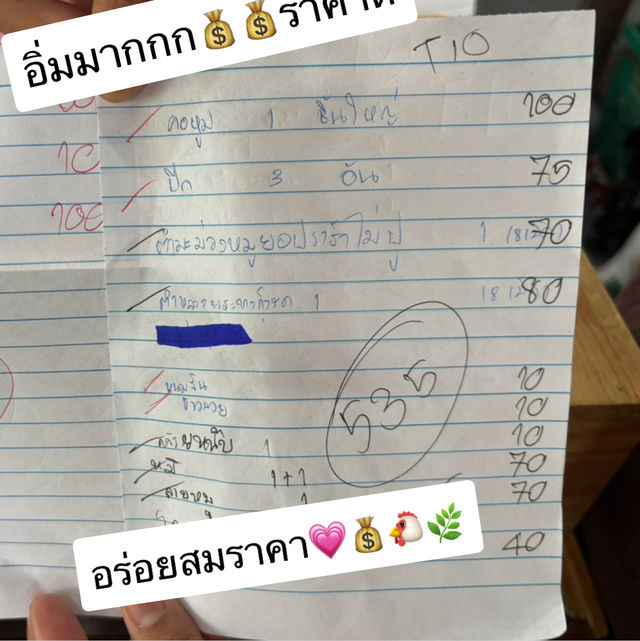 อิ่มมากกก💰💰ราคาดี
T10
คอหมู 1 ชิ้นใหญ่ 100
10
ปีก 3 อัน 75
100
ตำมะม่วงหมูยอปราร้าไม่ปู 1 70
1 80
535
ขนมจีน 10
ข้าวสวย 10
1 10
หมี่ 1+1 70
1 70
40
อร่อยสมราคา💗💰🐔🌿